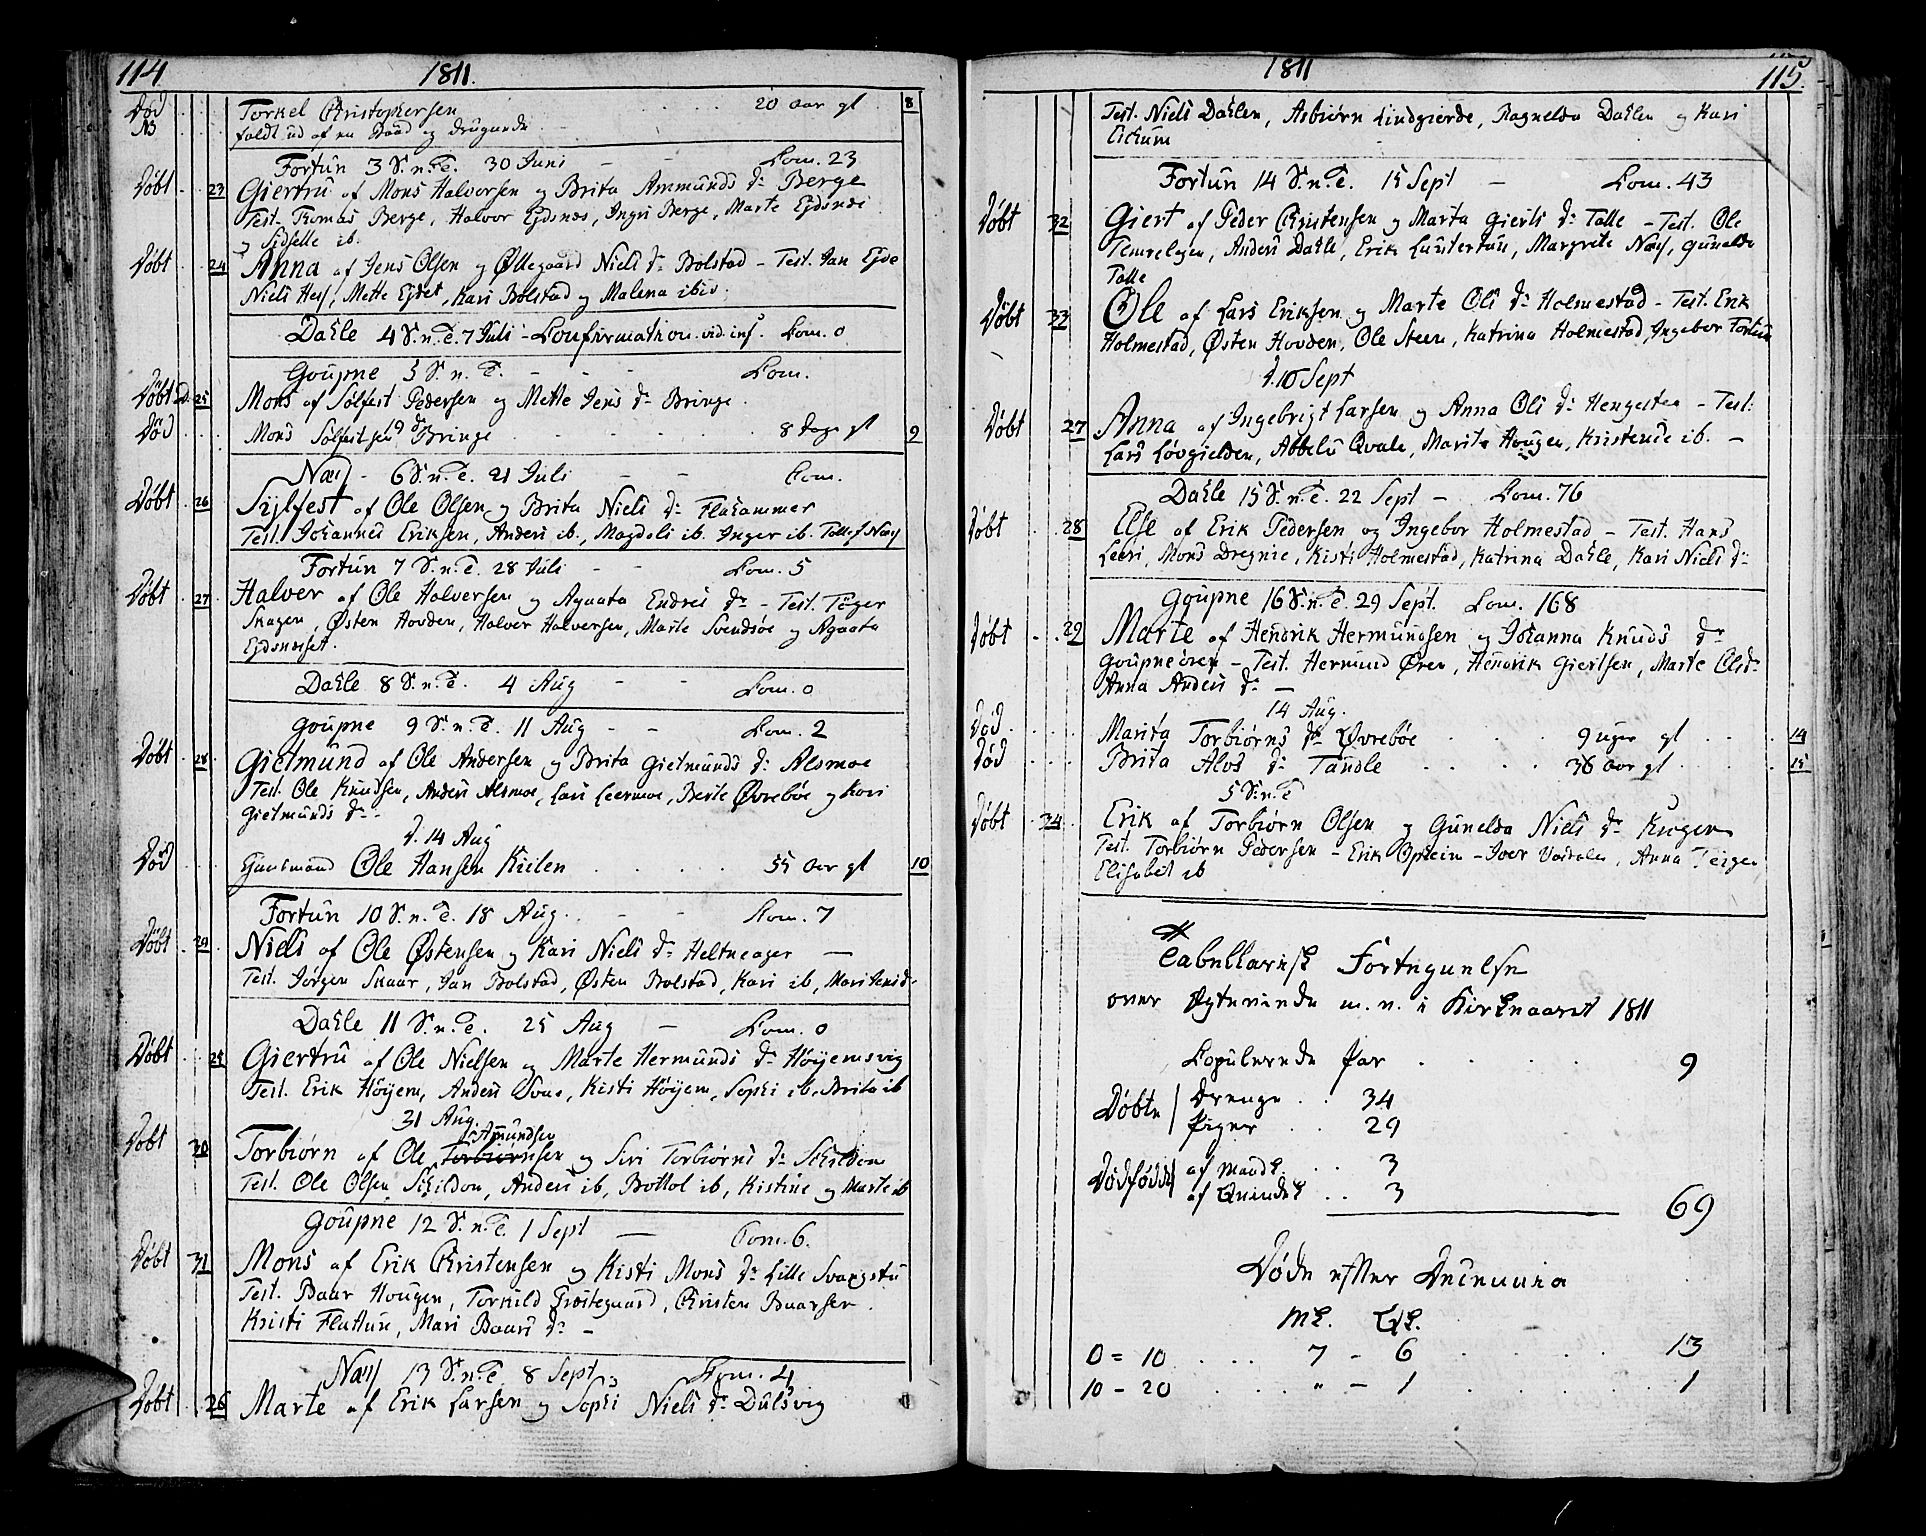 114 1811.
Død 20 Aar gl 8
NB Torkel Christophersen
faldt ud af en Baad og
Fortun 3 S. n. T. 30 Juni - - Com. 23
Døbt 23 Giertru af Mons Halvorsen og Brita Ammunds dr Berge
Test. Thomas Berge, Halvor Ejdsnæs, Ingri Berge, Marte Ejdsnæs
og Sidselle ib.
Døbt 24 Anna af Jens Olsen og Øllegaard Niels dr Bolstad - Test. Jan Ejde
Niels Hess, Mette Ejdet, Kari Bolstad og Malena ibid.
Dahle 4 S. n. T. 7 Juli - Confirmation vid. inf. Com. 0
Goupne 5 S. n. T. - - - Com.
Døbt D. 25 Mons af Sølfest Pedersen og Mette Jens dr Bringe.
Død Mons Sølfestsen Bringe 8 dage gl 9
Næss - 6 S. n. T. 21 Juli - - Com.
Døbt 26 Sylfest af Ole Olsen og Brita Niels dr Flahammer
Test. Johannes Eriksen, Anders ib., Magdeli ib. Inger ib. Tollef Næss
Fortun 7 S. n. T. 28 Juli - - Com. 5
Døbt 27 Halver af Ole Halversen og Agaata Endres dr - Test. Tøger
Skagen, Østen Hovden, Halver Halversen, Marte Svendsøe og Agaata
Ejdsneset.
Dahle 8 S. n. T. 4 Aug - - Com. 0
Goupne 9 S. n. T. 11 Aug - - Com. 2
Døbt 28 Gietmund af Ole Andersen og Brita Gietmunds dr Alsmoe
Test. Ole Knudsen, Anders Alsmoe, Lars Leermoe, Berte Øvrebøe og Kari
Gietmunds dr -
d. 14 Aug
Død Ole Hansen Kiilen 55 Aar gl 10
Fortun 10 S. n. T. 18 Aug. - - Com. 7
Døbt 29 Niels af Ole Østensen og Kari Niels dr Heltneager -
Test. Jørgen Skaar, Jan Bolstad, Østen Bolstad, Kari ib,
Dahle 11 S. n. T. 25 Aug - Com. 0
Døbt 25 Giertru af Ole Nielsen og Marte Hermunds dr Høyemsvig
Test. Erik Høyem, Anders Svae, Kisti Høyem, Sophi ib. Brita ib
31 Aug.
Amundsen
Døbt 30 Torbiørn af Ole Torbiørnsen og Siri Torbiørns dr Skildon
Test. Ole Olsen Skildon, Anders ib, Bottol ib, Kistine og Marte ib
Goupne 12 S. n. T. 1 Sept - Com. 6.
Døbt 31 Mons af Erik Christensen og Kisti Mons dr Lille Svangstu
Test. Baar Hougen, Torkild Prestegaard, Christen Baarsen.
Kristi Flattun, Mari Baars dr -
Næss 13 S. n. T. 8 Sept, Com. 4
Døbt 26 Marte af Erik Larsen og Sophi Niels dr Dulsvig
1811 115.
Test. Niels Dahlen, Asbiørn Lindgierde, Ragnelda Dahlen og Kari
Fortun 14 S. n. T. 15 Sept - Com. 43
Døbt 32 Giert af Peder Christensen og Marta Gierts dr Talle - Test. Ole
Anders Dahle, Erik Luntertun, Margrete Næss, Gunelda
Talle
Døbt 33 Ole af Lars Eriksen og Marte Ols dr Holmestad - Test. Erik
Holmestad, Østen Hovden, Ole Steen, Katrina Holmestad, Ingebor Fortun
d. 10 Sept
Døbt 27 Anna af Ingebrigt Larsen og Anna Ols dr Hengesten - Test:
Lars Løvgielden, Abbelu Qvale, Marita Hougen, Kristense ib. -
Dahle 15 S. n. T. 22 Sept - Com. 76
Døbt 28 Else af Erik Pedersen og Ingebor Holmestad - Test. Hans
Leeri, Mons Dregnie, Kisti Holmestad, Katrina Dahle, Kari Niels dr
Goupne 16 S. n. T. 29 Sept. Com. 168
Døbt 29 Marte af Hendrik Hermundsen og Johanna Knuds dr
Goupneøren - Test. Hermund Øren, Hendrik Giertsen, Marte Ols dr
Anna Anders dr -
14 Aug.
Død Marita Torbiørns dr Øvrebøe 9 uger gl 14
Død Brita Alvs dr Tandle 36 Aar gl 15
5 S. n. T
Døbt 34 Erik af Torbiørn Olsen og Gunelda Niels dr Krogen
Test. Torbiørn Pedersen - Erik Opheim - Iver Anna Teigen,
Elisabet ib
Tabellarisk Fortegnelse
over Egteviede m. v. i Kirkeaaret 1811
Copulerede Par 9
Døbte Drenge 34
Piger 29
Dødfødde af Mandk. 3
af Qvindek 3
69
Døde efter Decennia
Mk. Qk.
0 = 10 7 - 6 13
10 - 20 " - 1 1